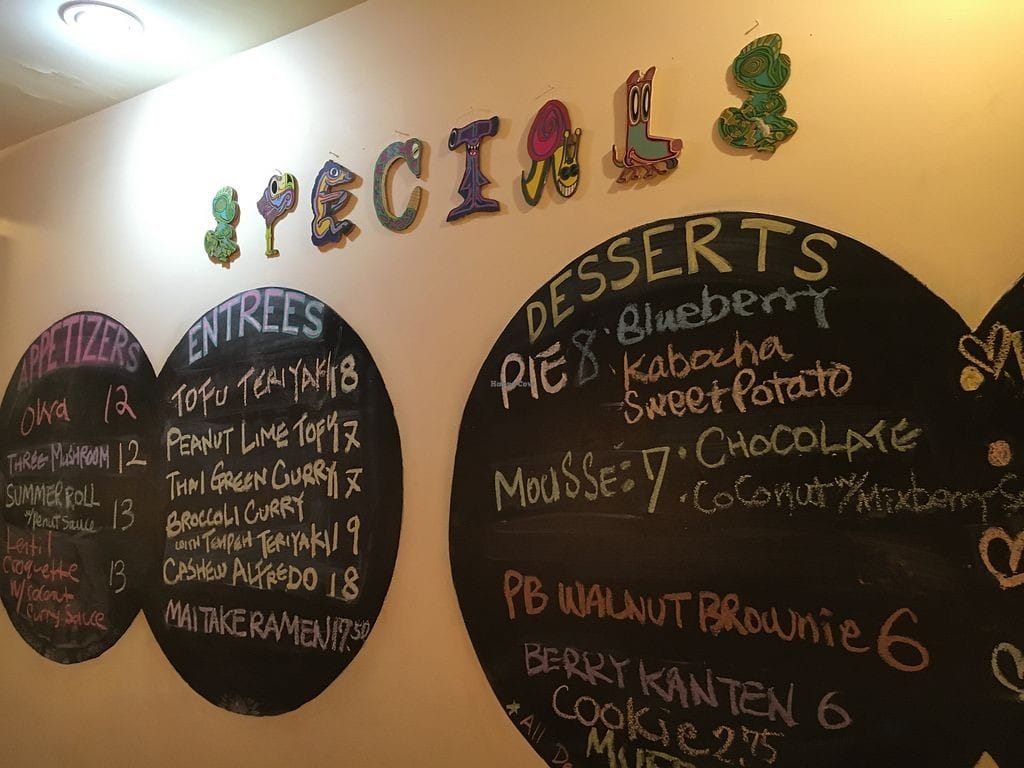 SPECIALS
APPETIZERS
OKRA 12
THREE MUSHROOM 12
SUMMER ROLL
w/Peanut Sauce 13
Lentil
Croquette
w/Coconut 13
Curry Sauce
ENTREES
TOFU TERIYAKI 18
PEANUT LIME TOFU 17
THAI GREEN CURRY 17
BROCCOLI CURRY
WITH TEMPEH TERIYAKI 19
CASHEW ALFREDO 18
MAITAKE RAMEN 17.50
DESSERTS
PIE 8 · Blueberry
Kabocha
Sweet Potato
MOUSSE: 7 · CHOCOLATE
· COCONUT w/ Mixberry
PB WALNUT BROWNIE 6
BERRY KANTEN 6
COOKIE 2.75
* All